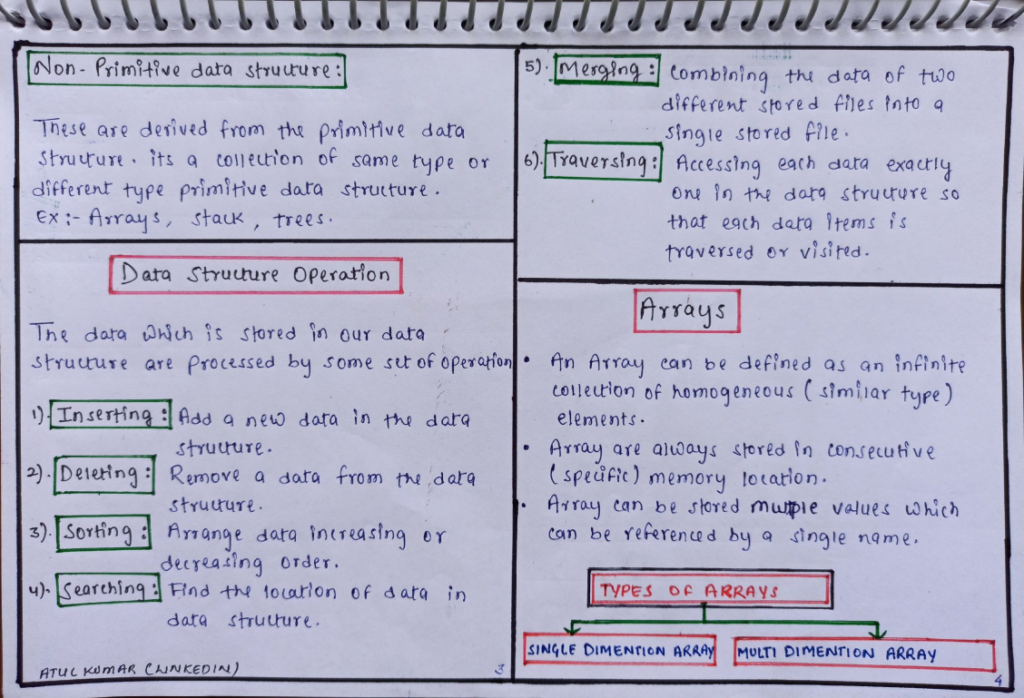 Non-Primitive data structure:
These are derived from the primitive data
structure. its a collection of same type or
different type primitive data structure.
Ex:- Arrays, stack, trees.
Data Structure Operation
The data which is stored in our data
structure are processed by some set of operation
1). Inserting: Add a new data in the data
structure.
2). Deleting: Remove a data from the data
structure.
3). Sorting: Arrange data increasing or
decreasing order.
4). Searching: Find the location of data in
data structure.
ATUL KUMAR (LINKEDIN)
3
5). Merging: Combining the data of two
different stored files into a
single stored file.
6). Traversing: Accessing each data exactly
one in the data structure so
that each data items is
traversed or visited.
Arrays
• An Array can be defined as an infinite
collection of homogeneous (similar type)
elements.
• Array are always stored in consecutive
(specific) memory location.
• Array can be stored multple values which
can be referenced by a single name.
TYPES OF ARRAYS
SINGLE DIMENTION ARRAY
MULTI DIMENTION ARRAY
4